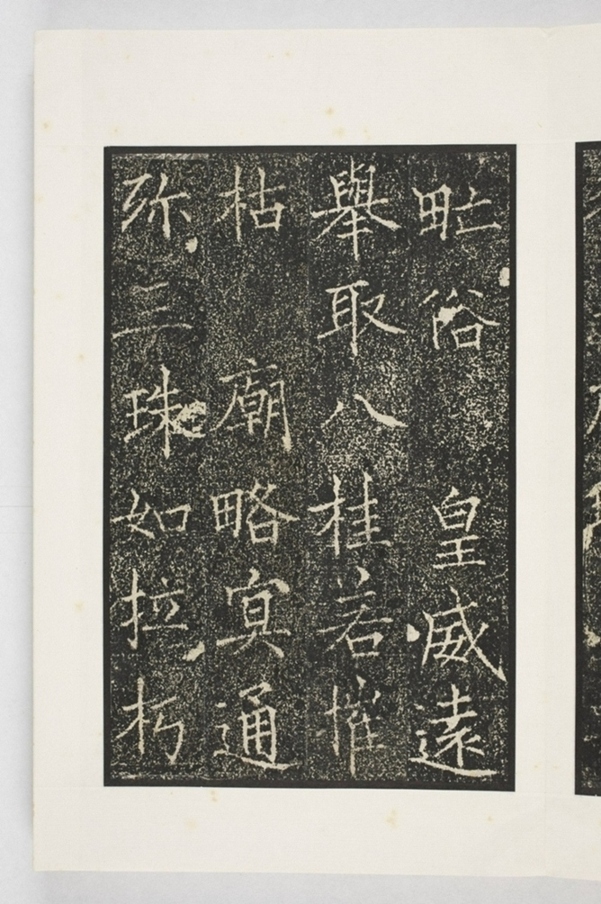 甿俗皇威遠
舉取八桂若摧
枯廟略冥通
弥三珠如拉朽